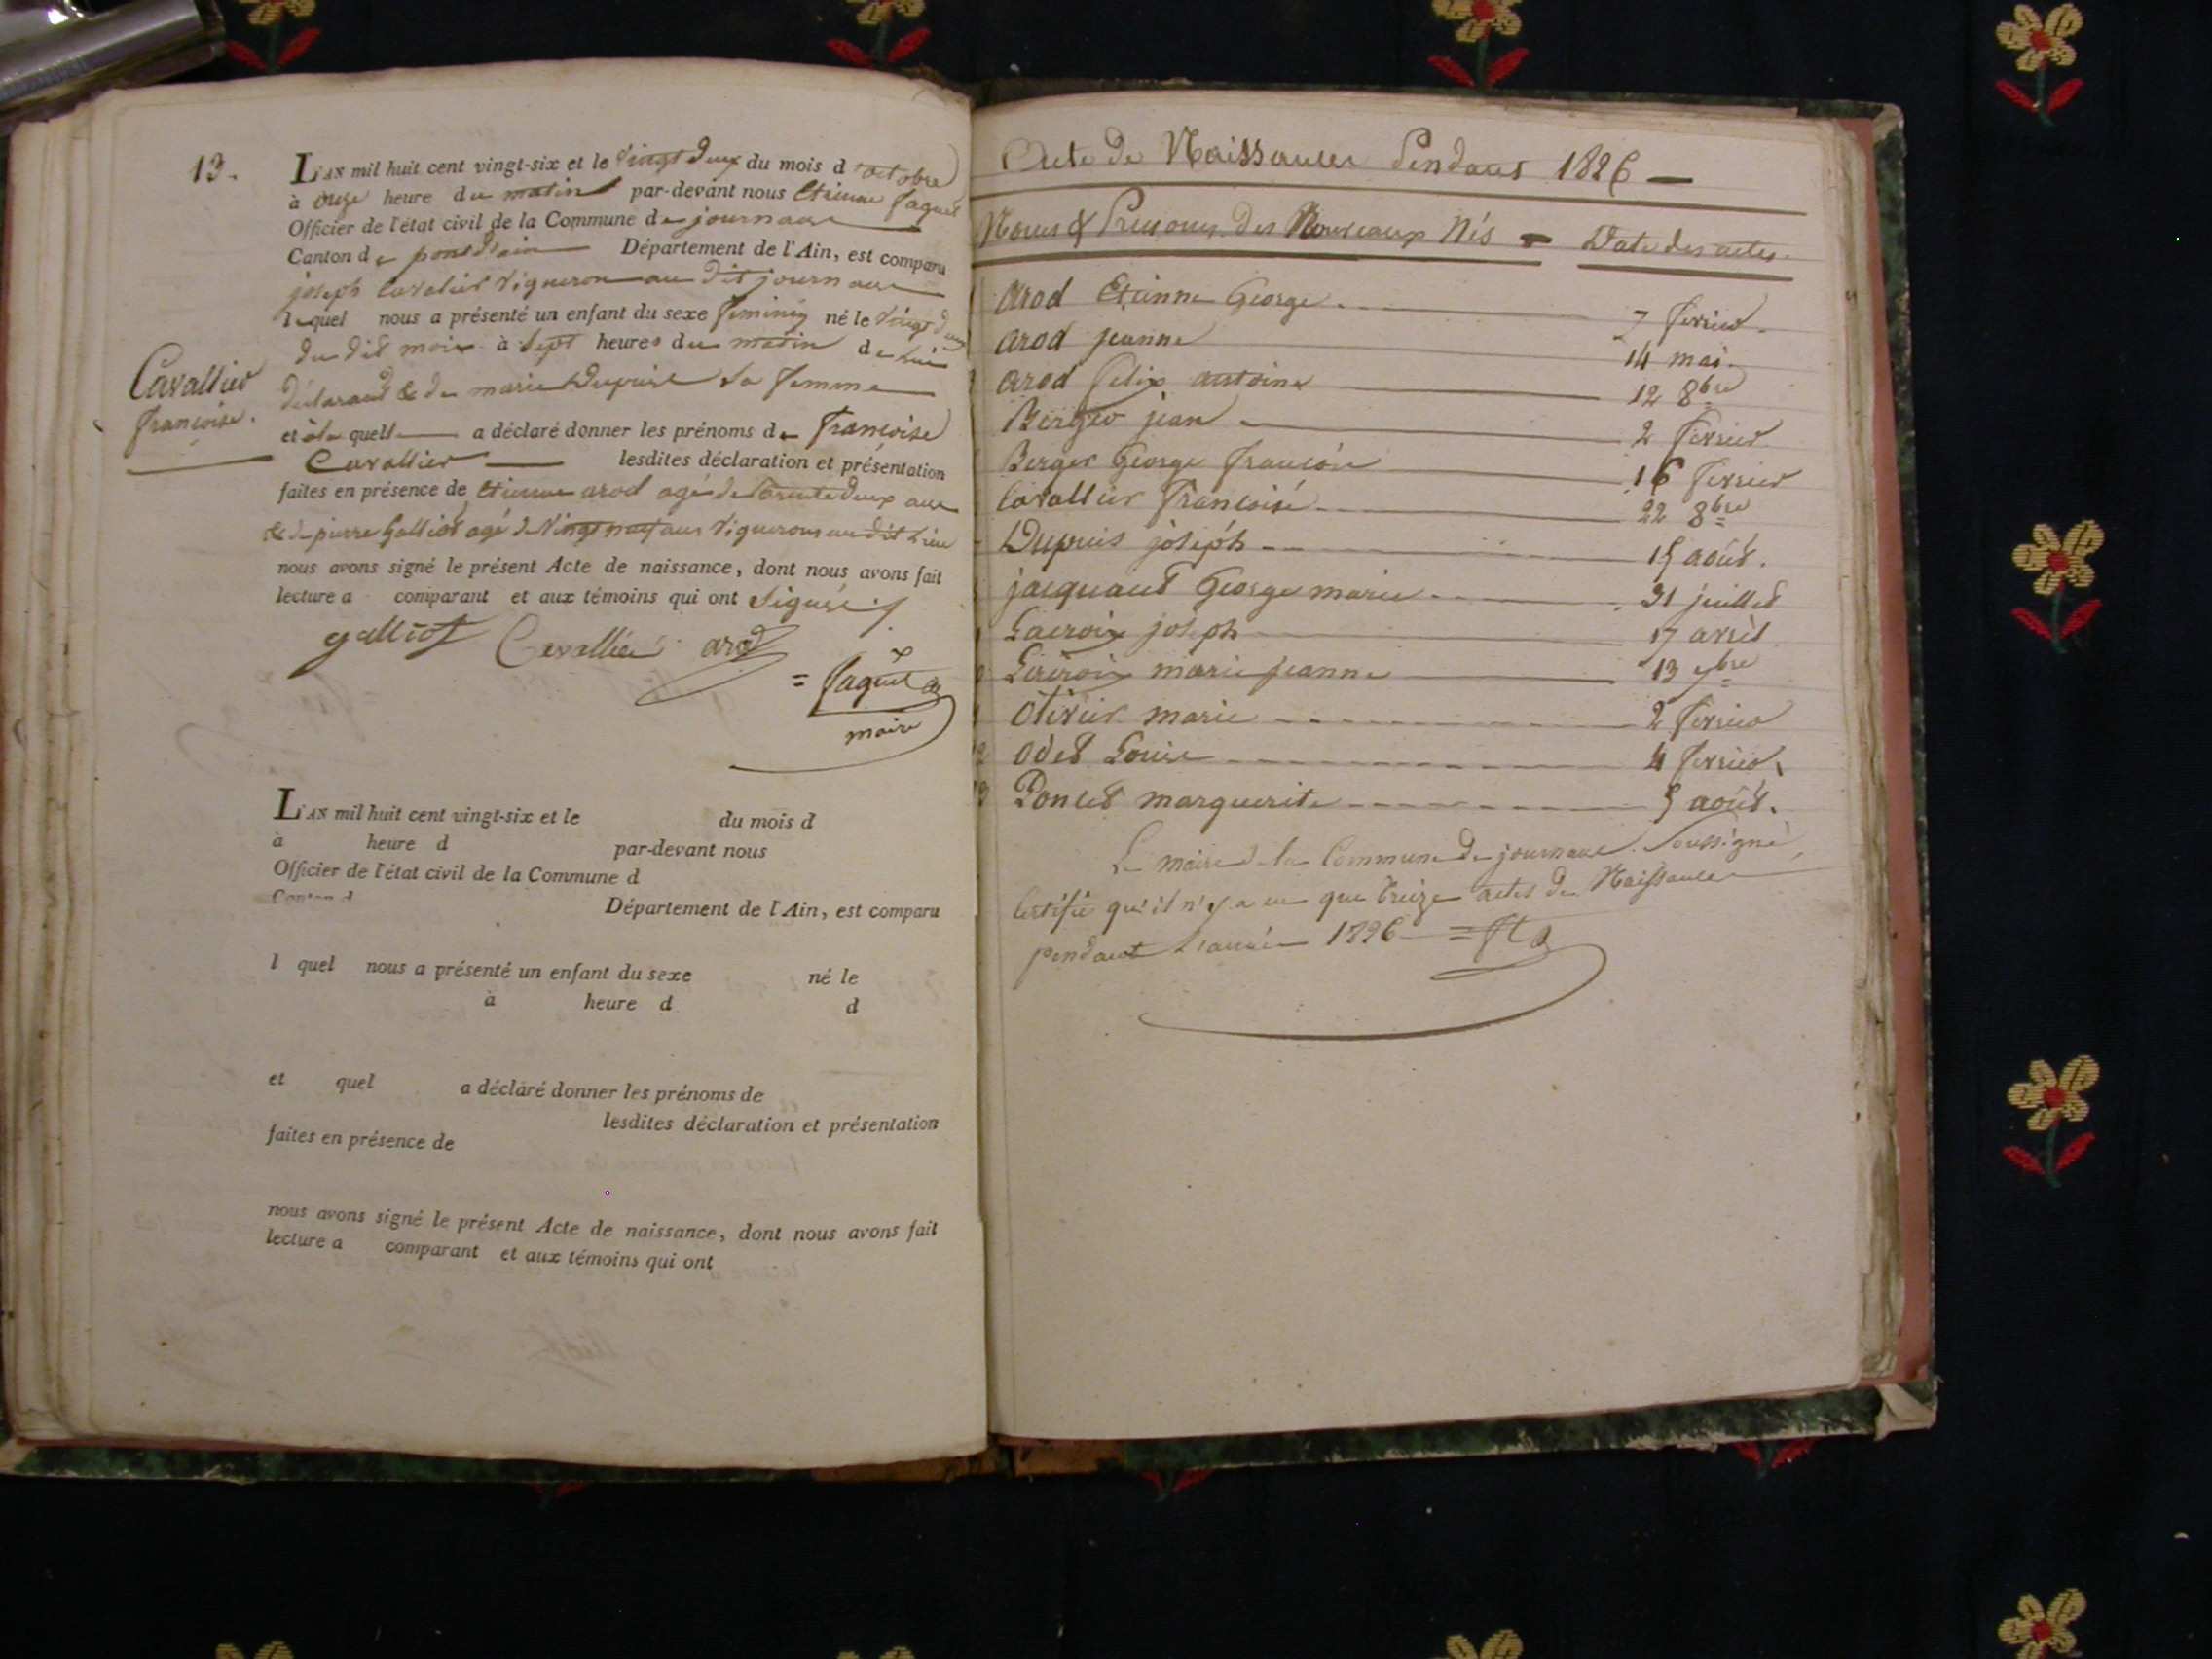 13.
L'AN mil huit cent vingt-six et le vingt deux du mois d'octobre
à onze heure du matin par-devant nous Etienne Jaquet
Officier de l'état civil de la Commune de journans
Canton de pont d'ain Département de l'Ain, est comparu
joseph Cavalier vigneron au dit journans
lequel nous a présenté un enfant du sexe feminin né le vingt deux
du dit mois à sept heures du matin de lui
déclarant & de marie Dupuis sa femme
Cavallier
françoise.
et à la quelle a déclaré donner les prénoms de françoise
Cavallier lesdites déclaration et présentation
faites en présence de Etienne arod agé de trente deux ans
& de pierre Galliot agé de vingt neuf ans vignerons au dit Lieu
nous avons signé le présent Acte de naissance, dont nous avons fait
lecture a comparant et aux témoins qui ont signés
galliot Cavallier arod
= Jaquet
maire
L'AN mil huit cent vingt-six et le du mois d
à heure d par-devant nous
Officier de l'état civil de la Commune d
Canton d
Département de l'Ain, est comparu
l quel nous a présenté un enfant du sexe né le
à heure d d
et quel a déclaré donner les prénoms de
lesdites déclaration et présentation
faites en présence de
nous avons signé le présent Acte de naissance, dont nous avons fait
lecture a comparant et aux témoins qui ont
Acte de Naissances Pendans 1826 —
Noms & Prenoms Des Nouveaux Nés - Date des actes.
arod Etienne George 7 fevrier.
arod jeanne 14 mai.
arod felix antoine 12 8bre
Berger jean 2 fevrier
Berger George françois 16 fevrier
Cavallier françoise 22 8bre
Dupuis joseph 15 août.
jacquand George marie 31 juillet
Lacroix joseph 17 avril
Lacroix marie jeanne 13 7bre
Olivier marie 2 fevrier
12 Odet Louise 4 fevrier.
13 Poncet marguerite 5 août.
Le maire de la Commune de journans Soussigné,
Certifie qu'il n'y a eu que treize actes de Naissances
pendant L'année 1826